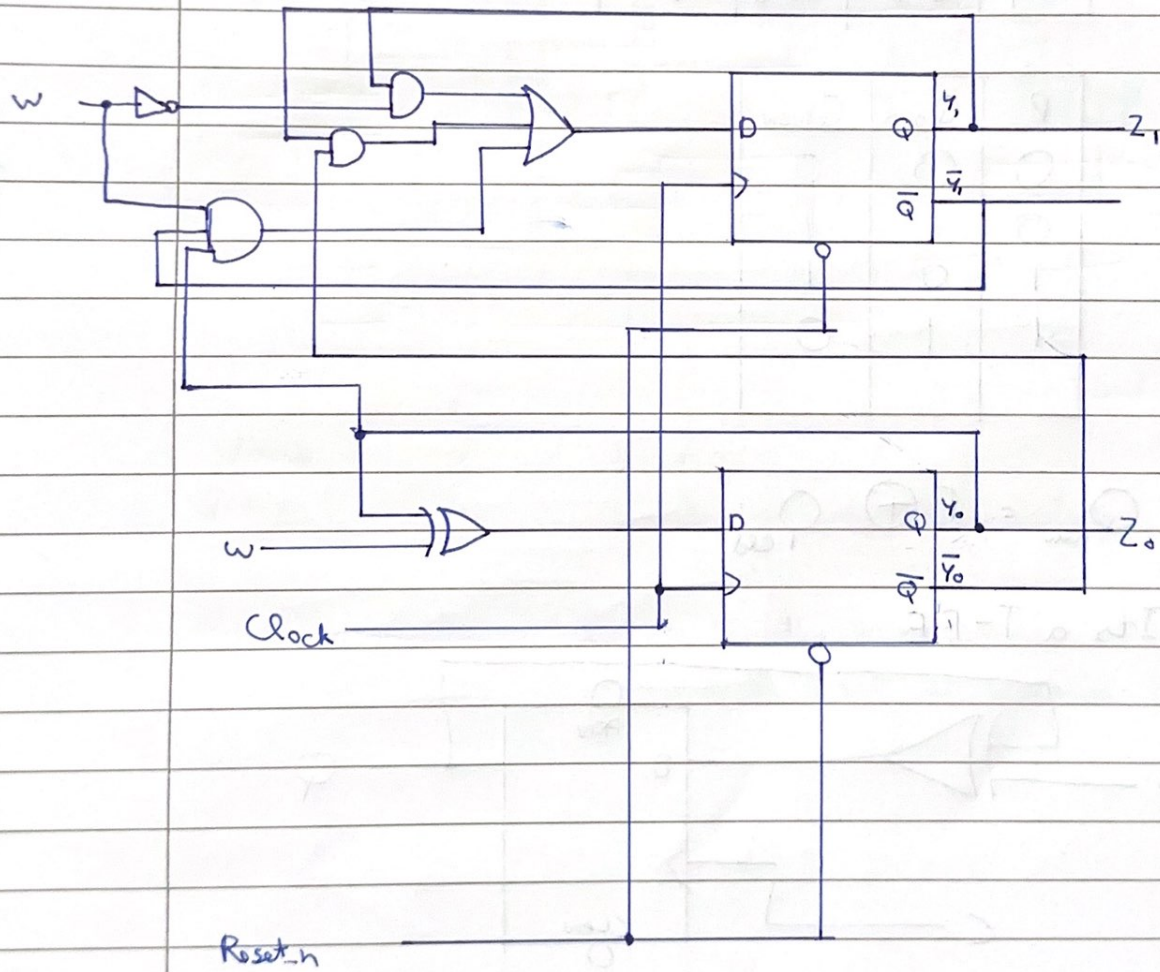 w
D
Q
y₁
Z₁
Q̅
y̅₁
D
Q
y₀
Z₀
w
Q̅
y̅₀
Clock
Reset_n